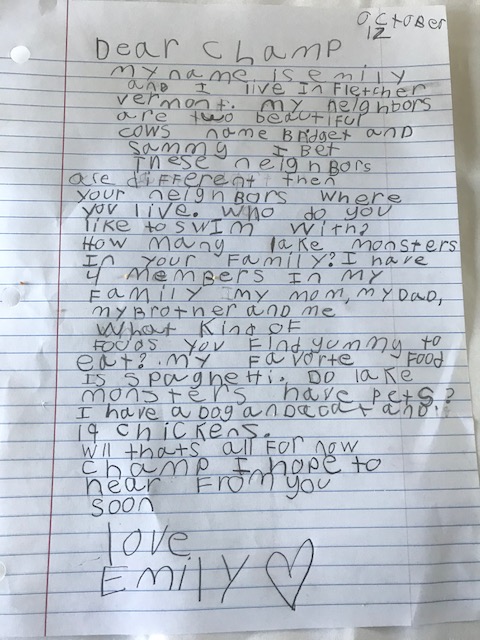 OCTOBER
12
Dear Champ
my name is emily
and I live In Fletcher
vermont. my neighbors
are two beautiful
cows name Bridget and
Sammy I Bet
These neighbors
are different then
your neighbors where
you live. Who do you
like to swim with?
How many lake monsters
In your Family? I have
4 members In my
Family my mom, my Dad,
my Brother and me
What kind of
foods you Find yummy to
eat? my Favorte Food
Is spaghetti. Do lake
monsters have pets?
I have a Dog and a cat and
19 chickens.
Wll thats all For now
Champ I hope to
hear From you
soon
love
Emily